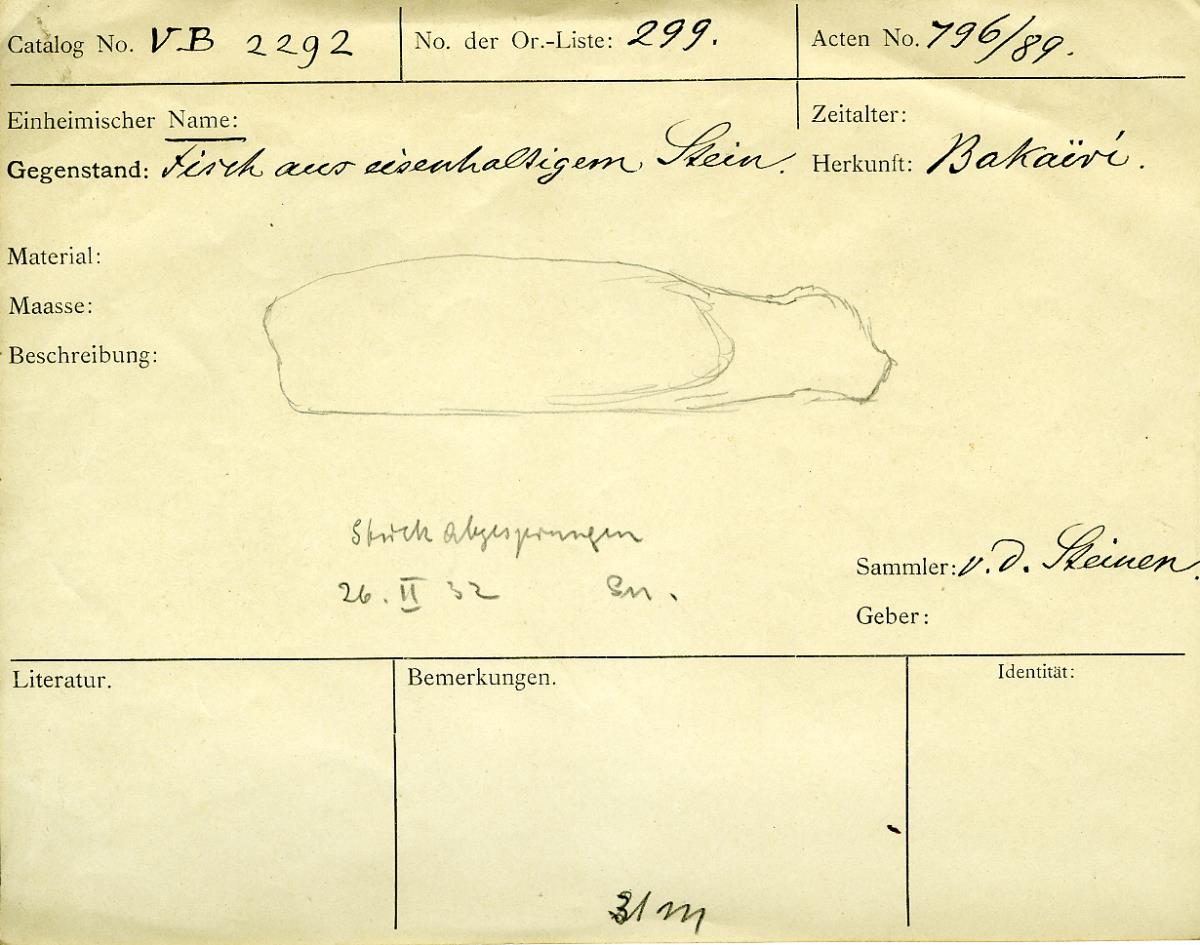 Catalog No. VB 2292
No. der Or.-Liste: 299.
Acten No. 796/89.
Einheimischer Name:
Zeitalter:
Gegenstand: Fisch aus eisenhaltigem Stein.
Herkunft: Bakaïrí.
Material:
Maasse:
Beschreibung:
Stück abgesprungen
26. II 32 Sn.
Sammler: v. d. Steinen.
Geber:
Literatur.
Bemerkungen.
Identität: